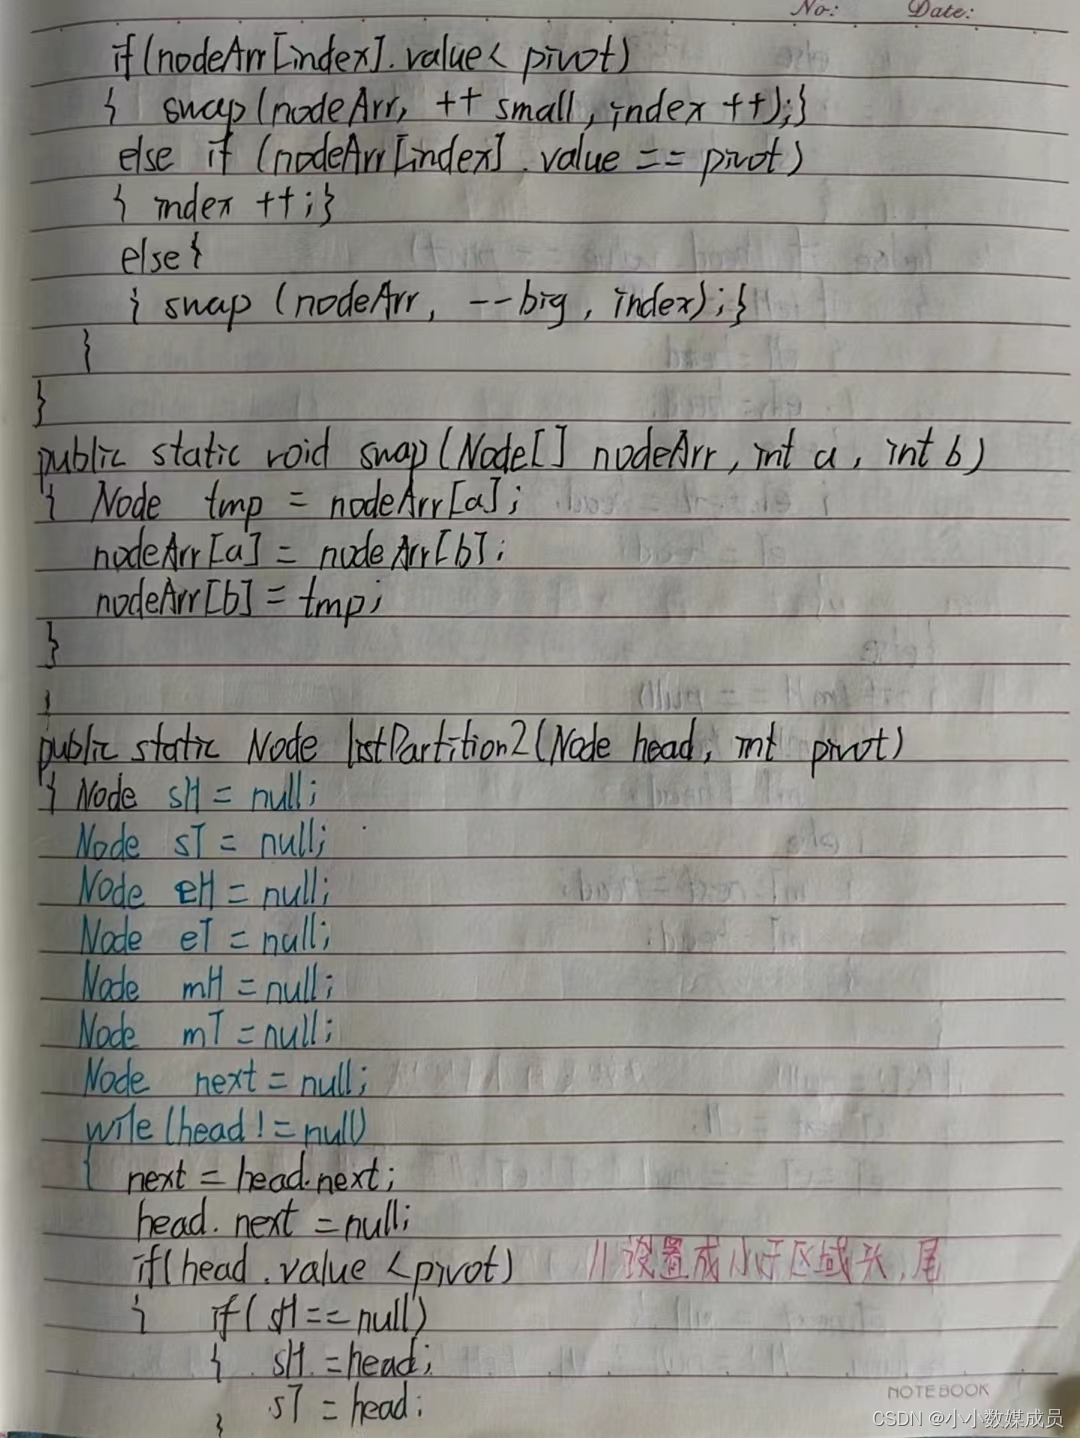 No: Date:
if(nodeArr[index].value< pivot)
{ swap(nodeArr, ++ small, index ++);}
else if (nodeArr[index].value == pivot)
{ index ++;}
else{
{ swap (nodeArr, --big, index);}
}
}
public static void swap(Node[] nodeArr, int a, int b)
{ Node tmp = nodeArr[a];
nodeArr[a] = nodeArr[b];
nodeArr[b] = tmp;
}
public static Node listPartition2(Node head, int pivot)
{ Node sH = null;
Node sT = null;
Node eH = null;
Node eT = null;
Node mH = null;
Node mT = null;
Node next = null;
wile(head != null)
{ next = head.next;
head.next = null;
if(head.value < pivot) //设置成小于区域头,尾
{ if( sH == null)
{ sH = head;
sT = head;
}
NOTEBOOK
CSDN @小小数媒成员